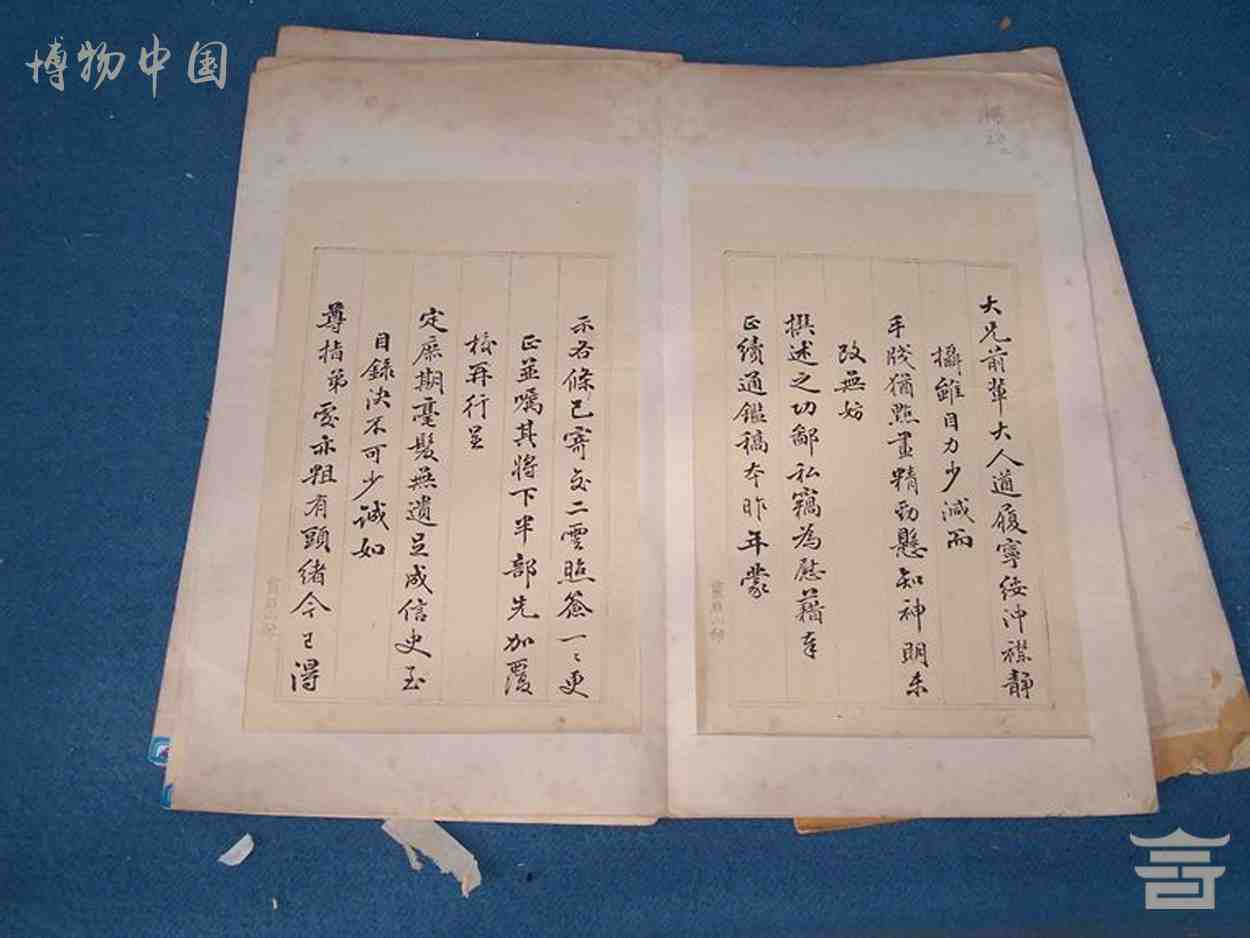 博物中国
大兄前輩大人道履寧綏沖襟靜
攝雖目力少減而
手牋猶點畫精勁懸知神明未
改無妨
撰述之功鄙私竊為慰藉奉
正續通鑑稿本昨年蒙
示各條已寄交二雲照簽一〻更
正並囑其將下半部先加覆
校再行呈
定庶期毫髮無遺足成信史至
目錄決不可少誠如
尊指弟處亦粗有頭緒今已得